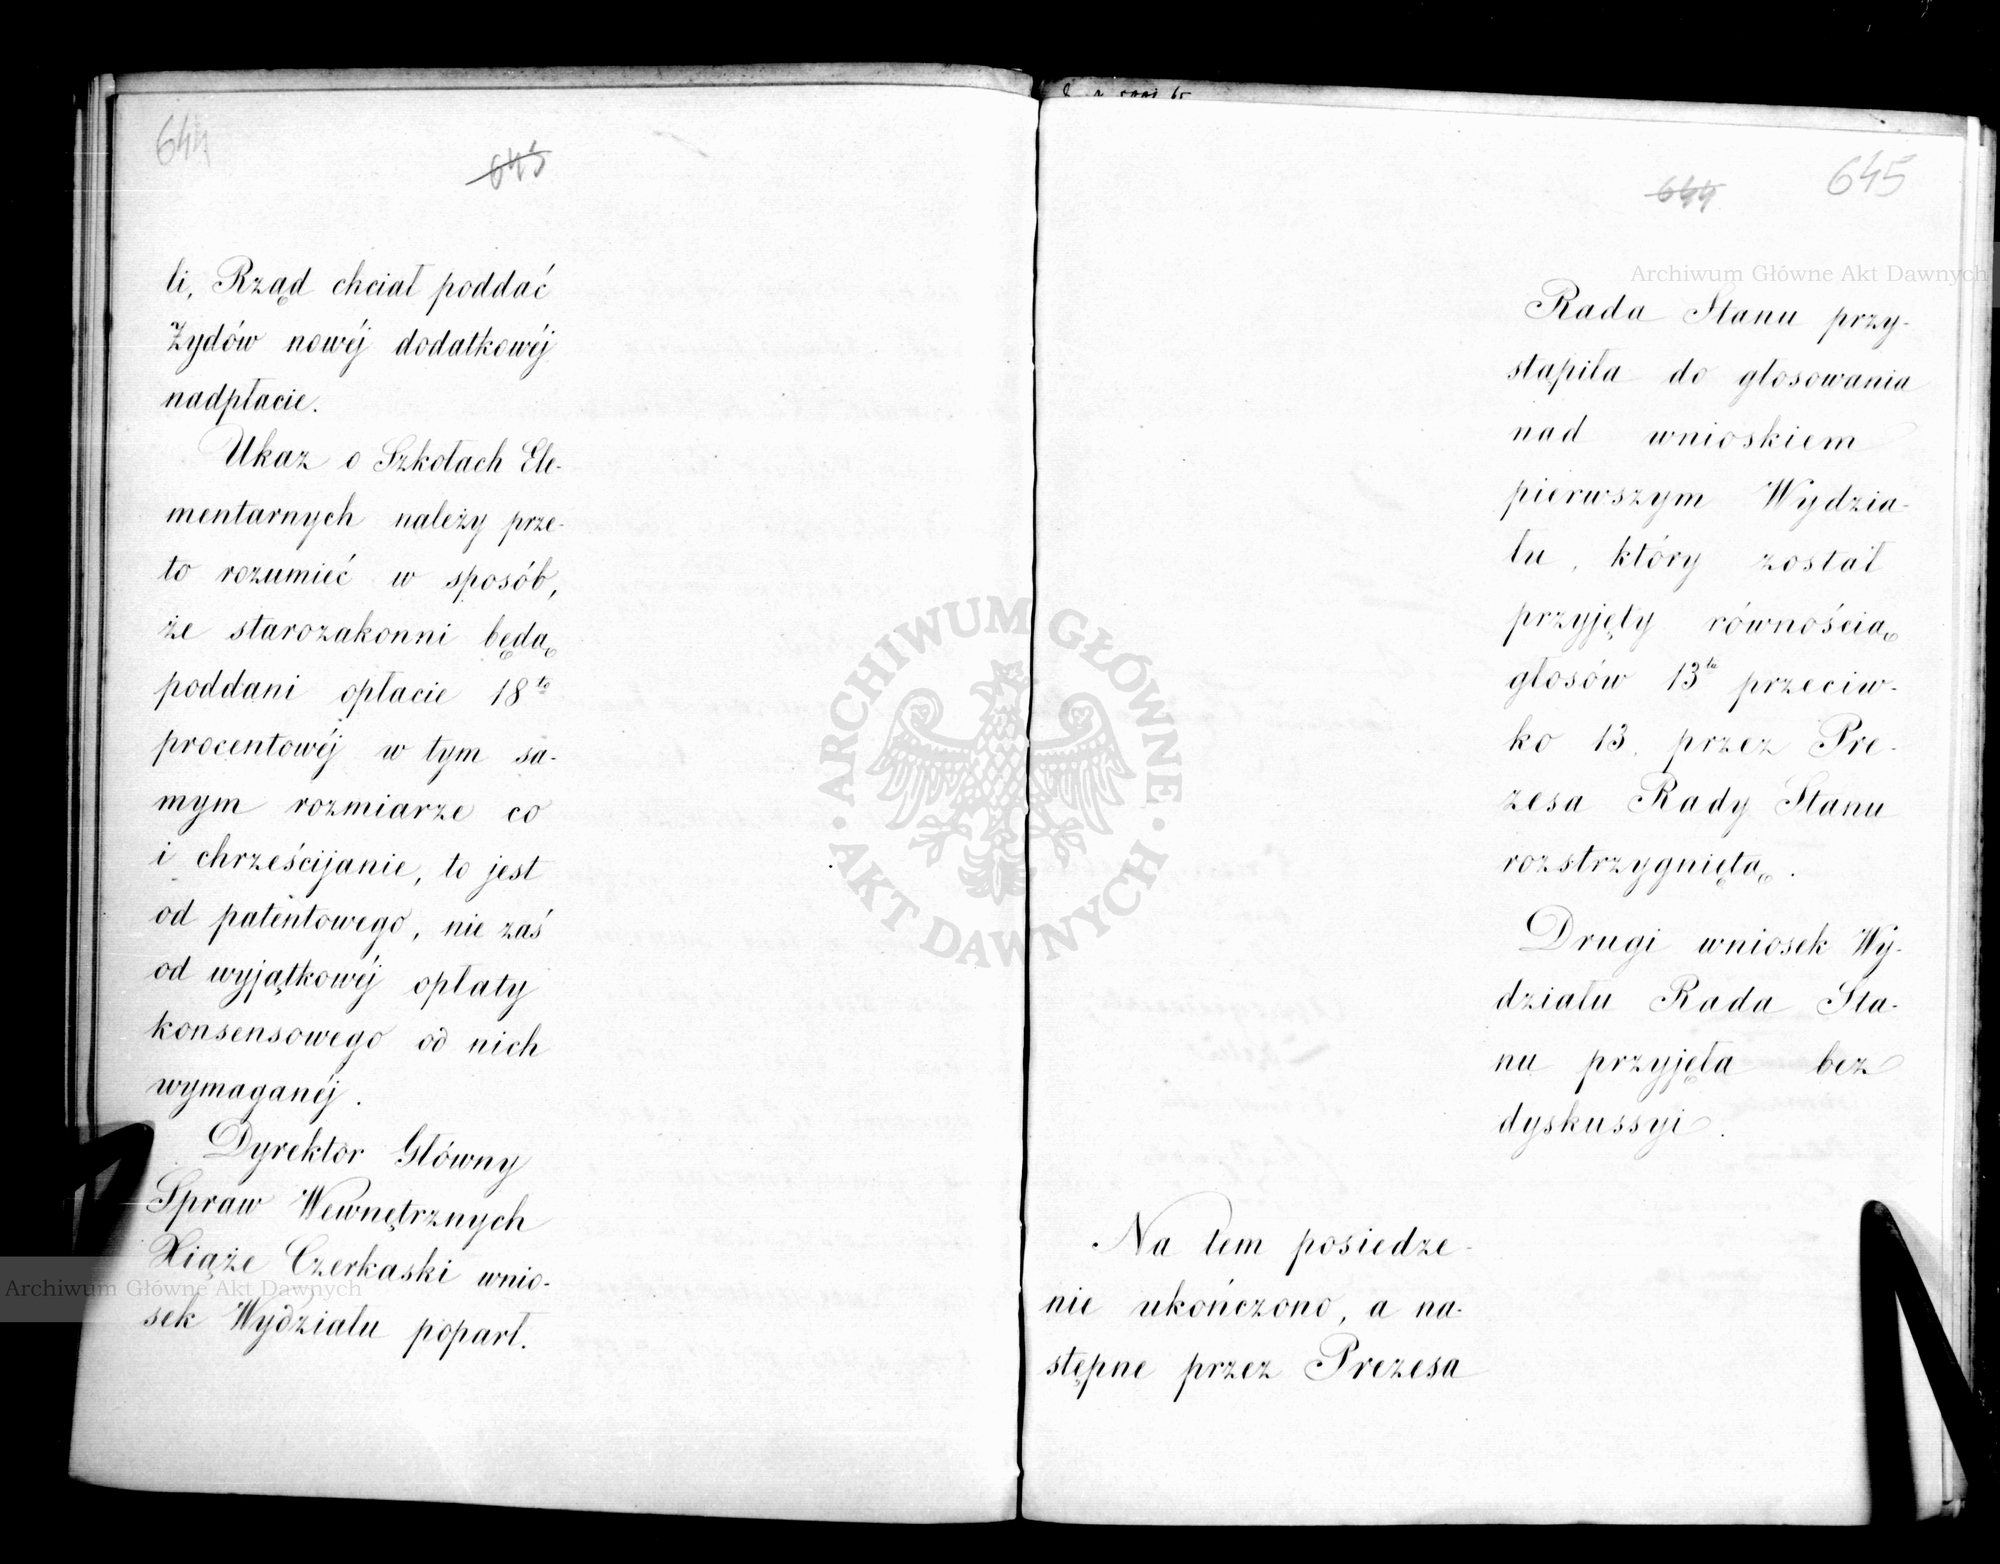 644
645
li, Rząd chciał poddać
Żydów nowéj dodatkowéj
nadpłacie.
Ukaz o Szkołach Ele-
mentarnych należy prze-
to rozumieć w sposób,
że starozakonni będą
poddani opłacie 18to
procentowéj w tym sa-
mym rozmiarze co
i chrześcijanie, to jest
od patentowego, nie zaś
od wyjątkowéj opłaty
konsensowego od nich
wymaganéj.
Dyrektor Główny
Spraw Wewnętrznych
Xiąże Czerkaski wnio-
sek Wydziału poparł.
Archiwum Główne Akt Dawnych
ARCHIWUM GŁÓWNE
AKT DAWNYCH
644
645
Archiwum Główne Akt Dawnych
Rada Stanu przy-
stąpiła do głosowania
nad wnioskiem
pierwszym Wydzia-
łu, który został
przyjęty równością
głosów 13tu przeciw-
ko 13. przez Pre-
zesa Rady Stanu
rozstrzygniętą.
Drugi wniosek Wy-
działu Rada Sta-
nu przyjęła bez
dyskussyi.
Na tem posiedze-
nie ukończono, a na-
stępne przez Prezesa